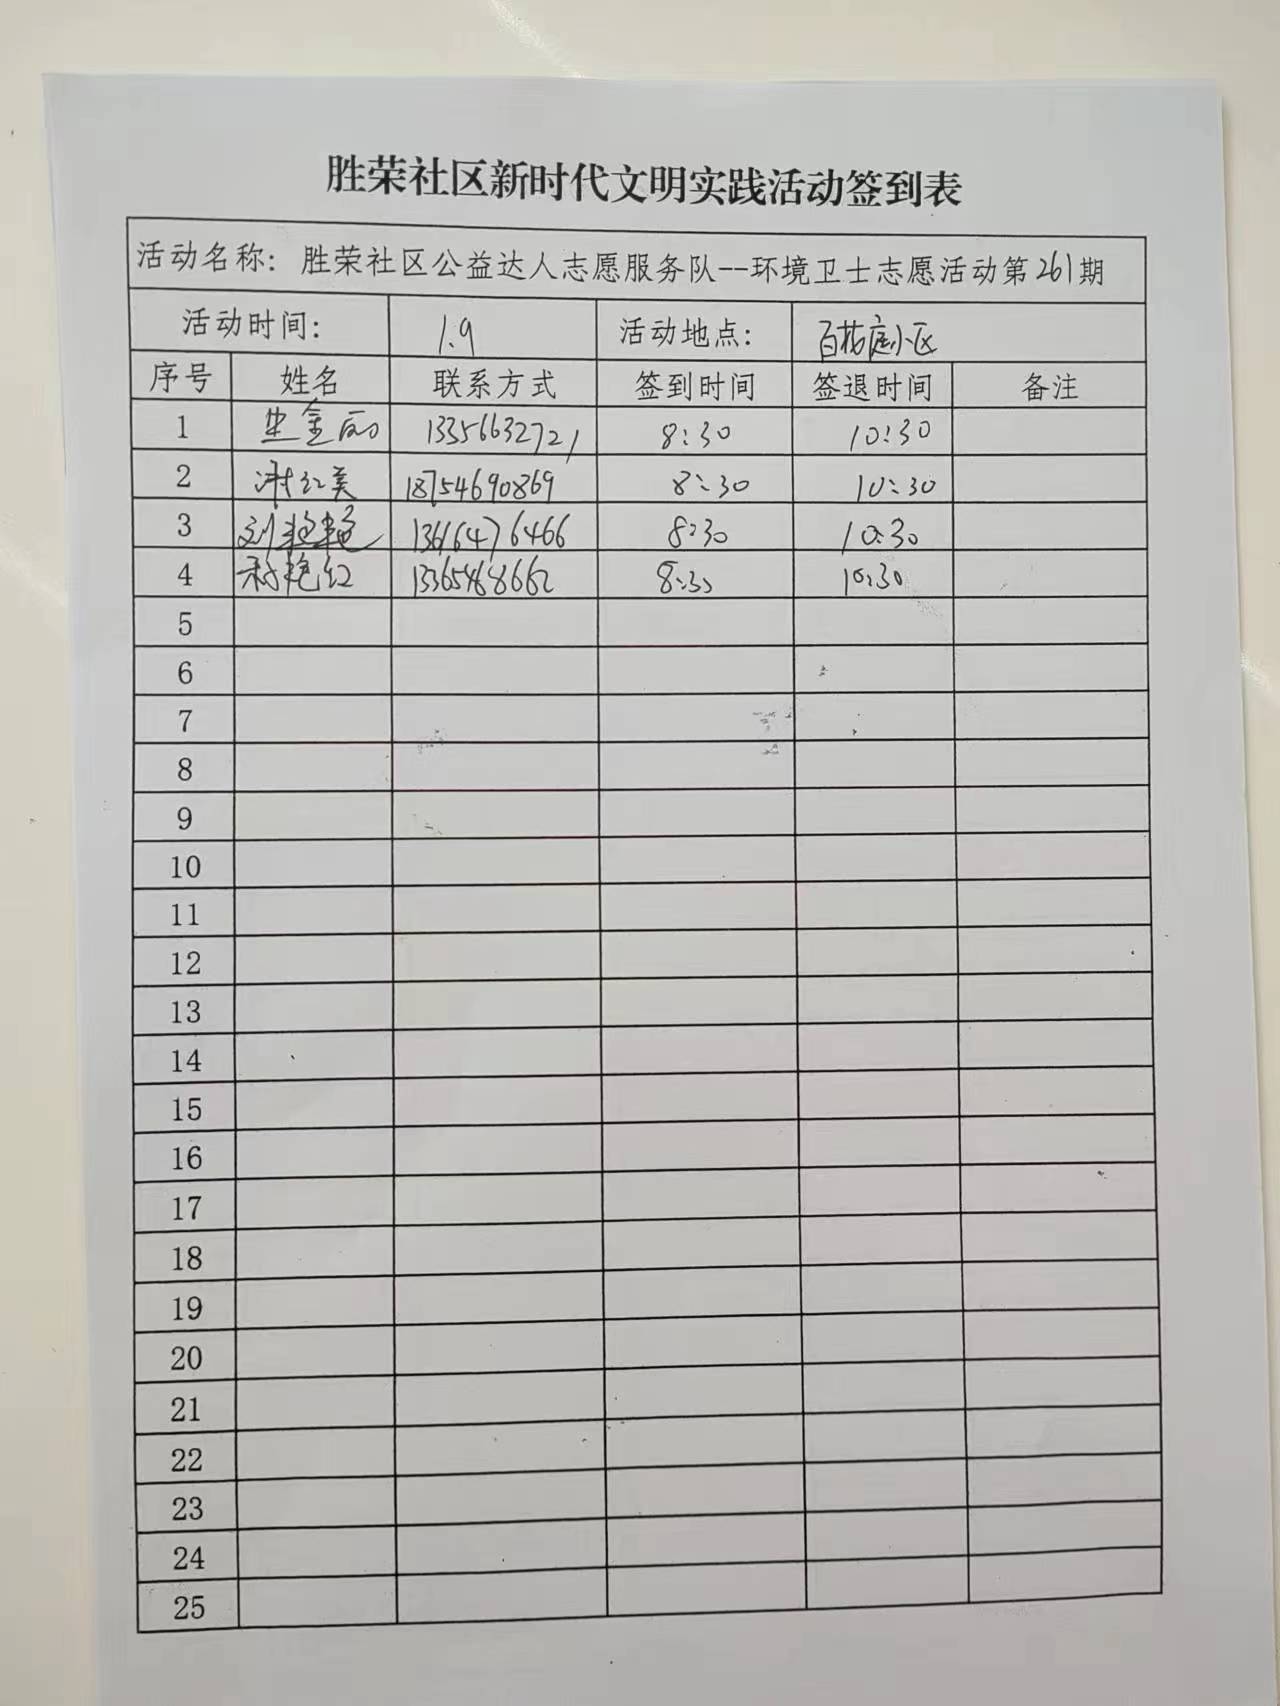 胜荣社区新时代文明实践活动签到表
活动名称：胜荣社区公益达人志愿服务队--环境卫士志愿活动第261期
活动时间： 1.9 活动地点： 百花庭小区
序号 姓名 联系方式 签到时间 签退时间 备注
1 金丽 13356632721 8:30 10:30
2 红美 18754690869 8:30 10:30
3 刘艳艳 13616476466 8:30 10:30
4 艳红 13365468662 8:30 10:30
5
6
7
8
9
10
11
12
13
14
15
16
17
18
19
20
21
22
23
24
25